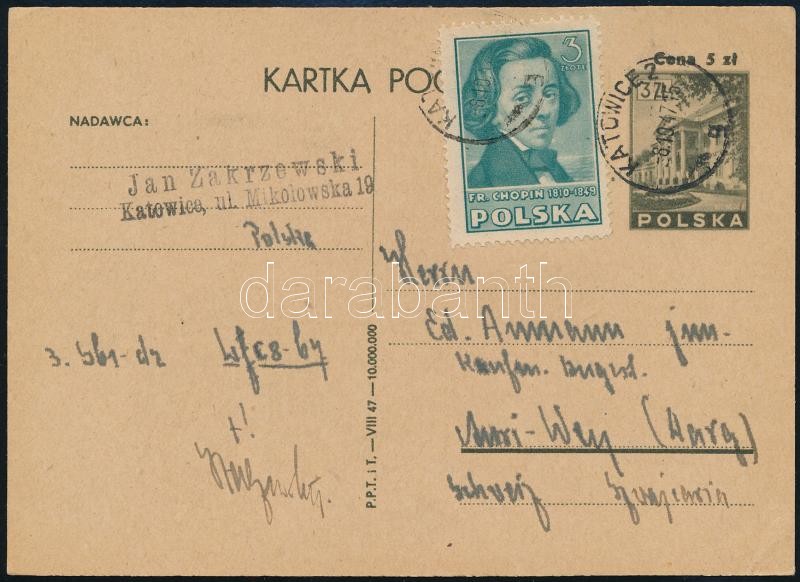 KARTKA POC
Cena 5 zł
3 ZŁOTE
FR. CHOPIN 1810-1849
POLSKA
3 ZŁ
POLSKA
KATOWICE 2
-8.10.47
NADAWCA:
Jan Zakrzewski
Katowice, ul. Mikołowska 19
Polska
Herrn
Ed. Ammann jun.
Muri-Wey (Aarg)
Schweiz Szwajcaria
P.P.T. i T. — VIII 47 — 10.000.000
darabanth